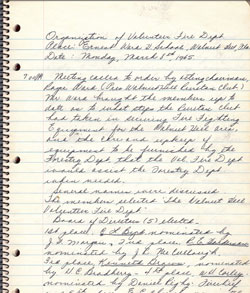 Organization of Volunteer Fire Dept
Place: Ernest Ward H. School, Walnut Hill, Fla
Date: Monday, March 8th, 1965.
7 oclk Meeting called to order by acting chairman,
Roger Ward (Pres Walnut Hill Ruritan Club)
Mr. Ward brought the members up to
date as to what steps the Ruritan Club
had taken in securing Fire Fighting
Equipment for the Walnut Hill area,
and the care and upkeep of
equipment to be furnished by the
Forestry Dept that the Vol Fire Dept
would assist the Forestry Dept
when needed.
Several names were discussed
The members selected The Walnut Hill
Volunteer Fire Dept.
Board of Directors (5) elected.
1st place. nominated by
J. H. Morgan, 2nd place,
nominated by J. D. McCullough,
3rd place, Kenneth, nominated
by V. C. Bradberry - 4th place,
nominated by Daniel